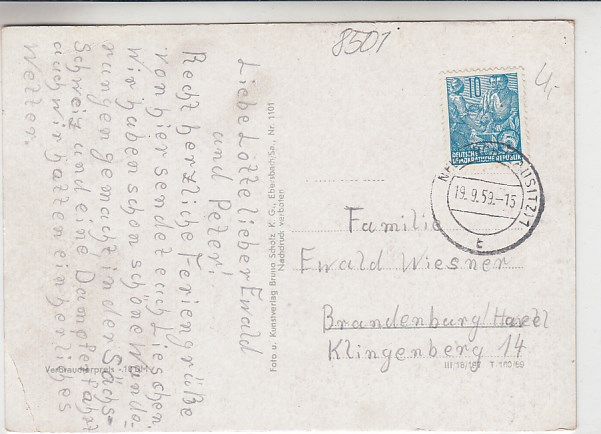 8501
4,-
Liebe Lotte lieber Ewald
und Peter!
Recht herzliche Feriengrüße
von hier sendet euch Lieschen.
Wir haben schon schöne Wande-
rungen gemacht in der Sächs-
Schweiz und eine Dampferfahrt
auch wir hatten ein herrliches
Wetter.
Verbraucherpreis
Foto u. Kunstverlag Bruno Scholz K. G., Ebersbach/Sa., Nr. 1101
Nachdruck verboten
10
5
DEUTSCHE
DEMOKRATISCHE REPUBLIK
19.9.59.-15
t
Familie
Ewald Wiesner
Brandenburg/Havel
Klingenberg 14
III/18/187 T 160/59